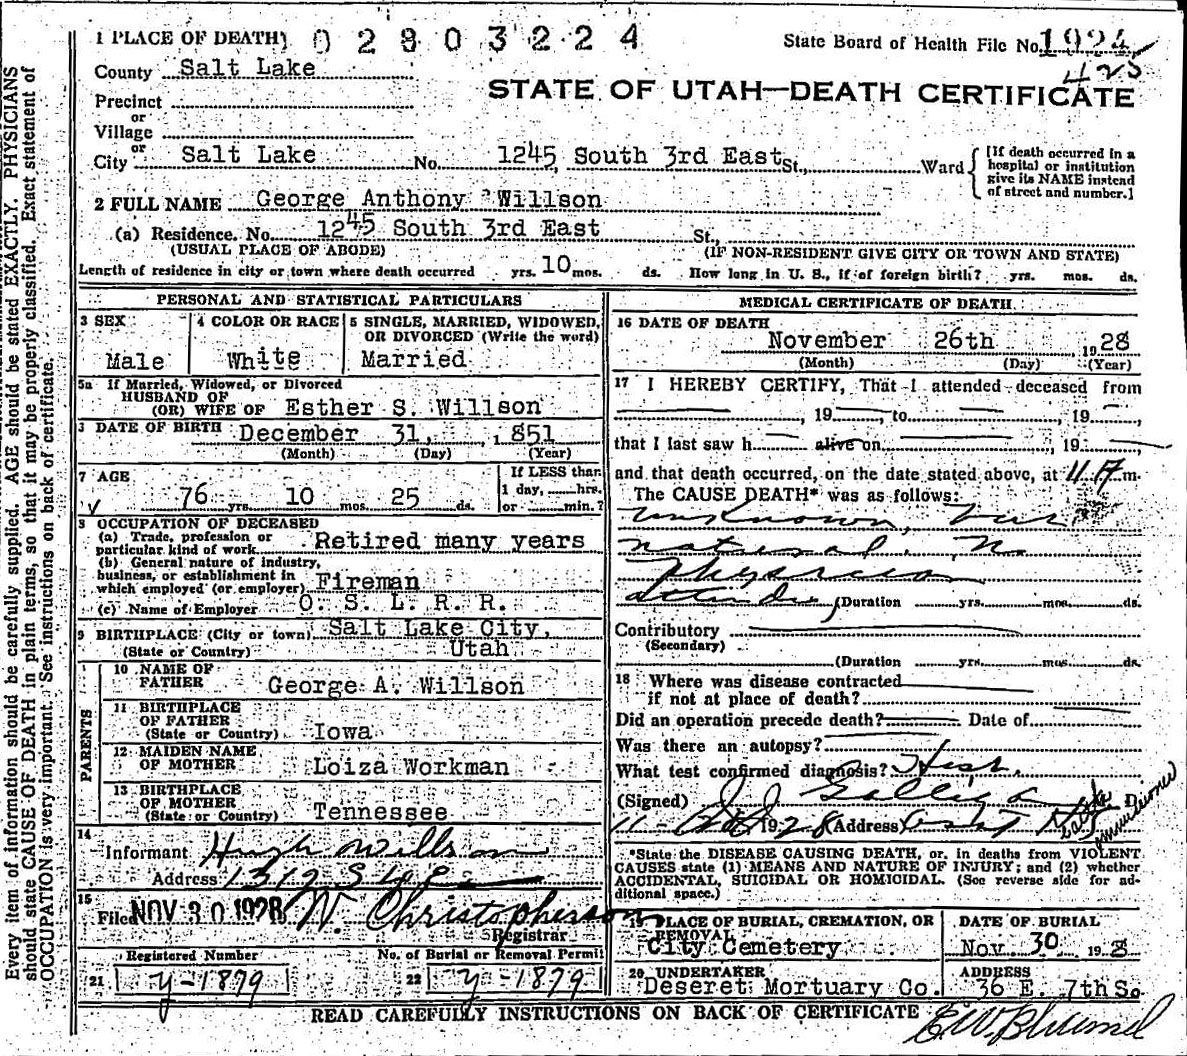 Every item of information should be carefully supplied. AGE should be stated EXACTLY. PHYSICIANS
should state CAUSE OF DEATH in plain terms, so that it may be properly classified. Exact statement of
OCCUPATION is very important. See instructions on back of certificate.
1 PLACE OF DEATH
State Board of Health File No. 1924
425
County Salt Lake
STATE OF UTAH—DEATH CERTIFICATE
Precinct
or
Village
or
City Salt Lake No. 1245 South 3rd East St., Ward
[If death occurred in a
hospital or institution
give its NAME instead
of street and number.]
2 FULL NAME George Anthony Willson
(a) Residence. No. 1245 South 3rd East St.,
(USUAL PLACE OF ABODE) (IF NON-RESIDENT GIVE CITY OR TOWN AND STATE)
Length of residence in city or town where death occurred yrs. 10 mos. ds. How long in U. S., if of foreign birth? yrs. mos. ds.
PERSONAL AND STATISTICAL PARTICULARS
3 SEX
Male
4 COLOR OR RACE
White
5 SINGLE, MARRIED, WIDOWED,
OR DIVORCED (Write the word)
Married
5a If Married, Widowed, or Divorced
HUSBAND OF
(OR) WIFE OF Esther S. Willson
DATE OF BIRTH December 31, 1851
(Month) (Day) (Year)
7 AGE
76 yrs. 10 mos. 25 ds.
If LESS than
1 day, hrs.
or min.?
8 OCCUPATION OF DECEASED
(a) Trade, profession or
particular kind of work Retired many years
(b) General nature of industry,
business, or establishment in
which employed (or employer) Fireman
(c) Name of Employer O. S. L. R. R.
9 BIRTHPLACE (City or town) Salt Lake City,
(State or Country) Utah
PARENTS
10 NAME OF
FATHER George A. Willson
11 BIRTHPLACE
OF FATHER
(State or Country) Iowa
12 MAIDEN NAME
OF MOTHER Loiza Workman
13 BIRTHPLACE
OF MOTHER
(State or Country) Tennessee
14
Informant Hugh Willson
Address 1312 S
15
Filed NOV 30 1928 W. Christopherson
Registrar
Registered Number
21 y-1879
No. of Burial or Removal Permit
22 y-1879
MEDICAL CERTIFICATE OF DEATH
16 DATE OF DEATH
November 26th 1928
(Month) (Day) (Year)
17 I HEREBY CERTIFY, That I attended deceased from
, 19 to , 19
that I last saw h alive on , 19
and that death occurred, on the date stated above, at m.
The CAUSE DEATH* was as follows:
unknown, but
natural. No
Physician
attending (Duration yrs. mos. ds.
Contributory
(Secondary)
(Duration yrs. mos. ds.
18 Where was disease contracted
if not at place of death?
Did an operation precede death? Date of
Was there an autopsy?
What test confirmed diagnosis? Hist.
(Signed) D
11- 1928 (Address) Health
Commissioner
*State the DISEASE CAUSING DEATH, or, in deaths from VIOLENT
CAUSES state (1) MEANS AND NATURE OF INJURY; and (2) whether
ACCIDENTAL, SUICIDAL OR HOMICIDAL. (See reverse side for ad-
ditional space.)
19 PLACE OF BURIAL, CREMATION, OR
REMOVAL
City Cemetery
DATE OF BURIAL
Nov. 30 1928
20 UNDERTAKER
Deseret Mortuary Co.
ADDRESS
36 E. 7th So.
READ CAREFULLY INSTRUCTIONS ON BACK OF CERTIFICATE